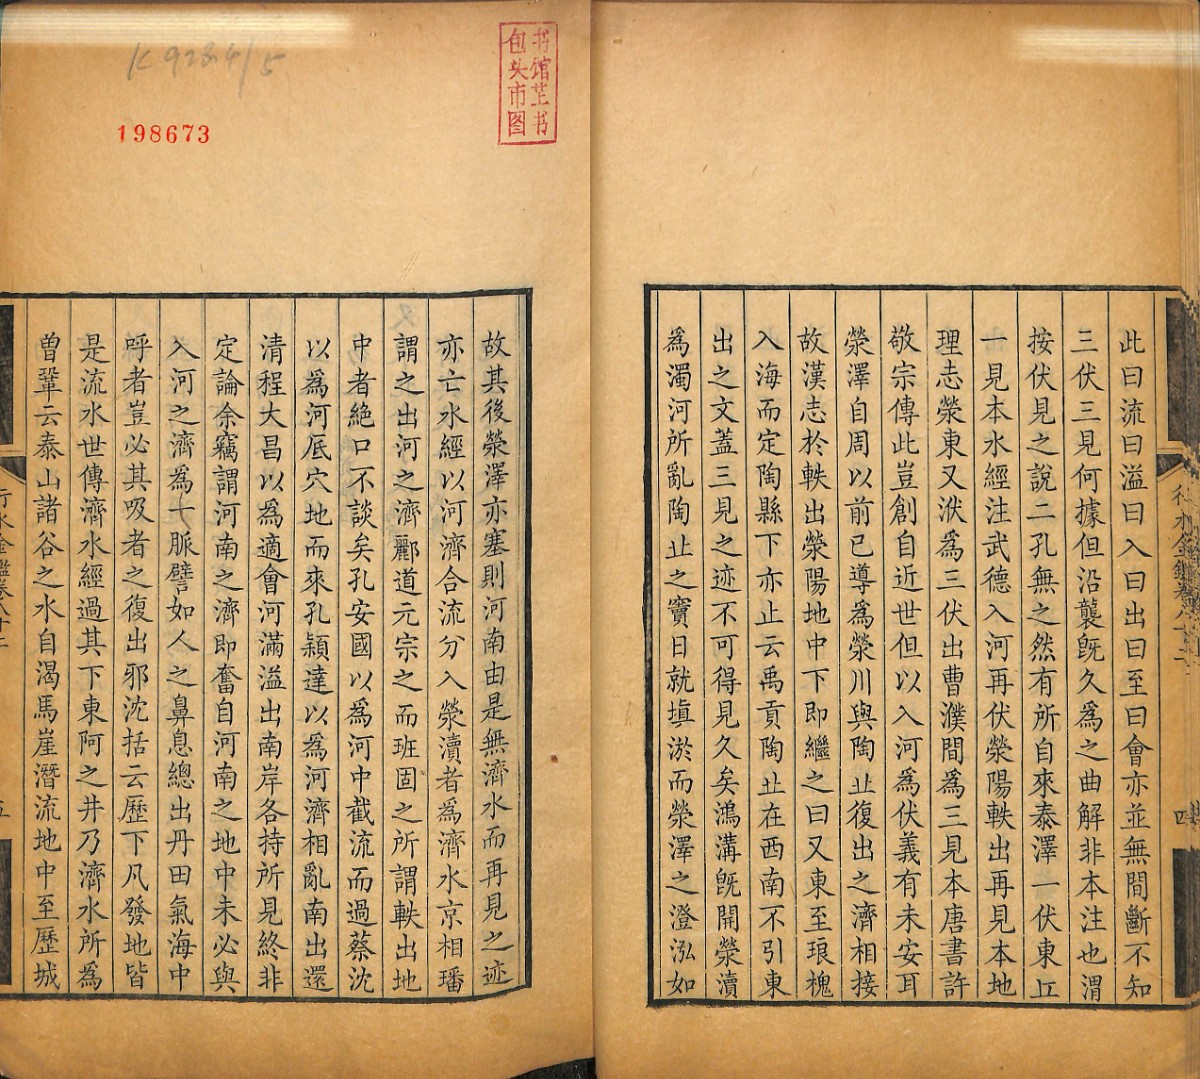 此曰流曰溢曰入曰出曰至曰會亦並無間斷不知
三伏三見何據但沿襲旣久爲之曲解非本注也渭
按伏見之說二孔無之然有所自來泰澤一伏東丘
一見本水經注武德入河再伏滎陽軼出再見本地
理志滎東又洑爲三伏出曹濮間爲三見本唐書許
敬宗傳此豈創自近世但以入河爲伏義有未安耳
滎澤自周以前已導爲滎川與陶丘復出之濟相接
故漢志於軼出滎陽地中下即繼之曰又東至琅槐
入海而定陶縣下亦止云禹貢陶丘在西南不引東
出之文蓋三見之迹不可得見久矣鴻溝旣開滎瀆
爲濁河所亂陶丘之竇日就塡淤而滎澤之澄泓如
四
故其後滎澤亦塞則河南由是無濟水而再見之迹
亦亡水經以河濟合流分入滎瀆者爲濟水京相璠
謂之出河之濟酈道元宗之而班固之所謂軼出地
中者絕口不談矣孔安國以爲河中截流而過蔡沈
以爲河底穴地而來孔穎達以爲河濟相亂南出還
清程大昌以爲適會河滿溢出南岸各持所見終非
定論余竊謂河南之濟即奮自河南之地中未必與
入河之濟爲一脈譬如人之鼻息總出丹田氣海中
呼者豈必其吸者之復出邪沈括云歷下凡發地皆
是流水世傳濟水經過其下東阿之井乃濟水所爲
曾鞏云泰山諸谷之水自渴馬崖潛流地中至歷城
行水金鑑卷八十二
五
书馆芷书
包头市图
K928.4/5
198673